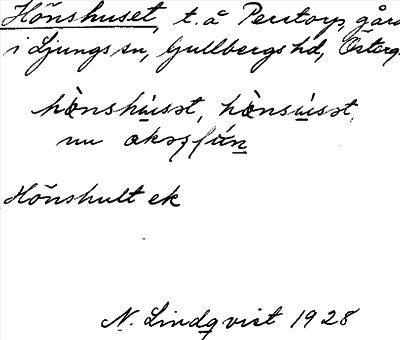 Hönshuset, t. å Perstorp, gård
i Ljungs sn, Gullbergs hd, Österg
hö̀nshùsət, hö̀nsùsət,
nu
Hönshult ek
N. Lindqvist 1928